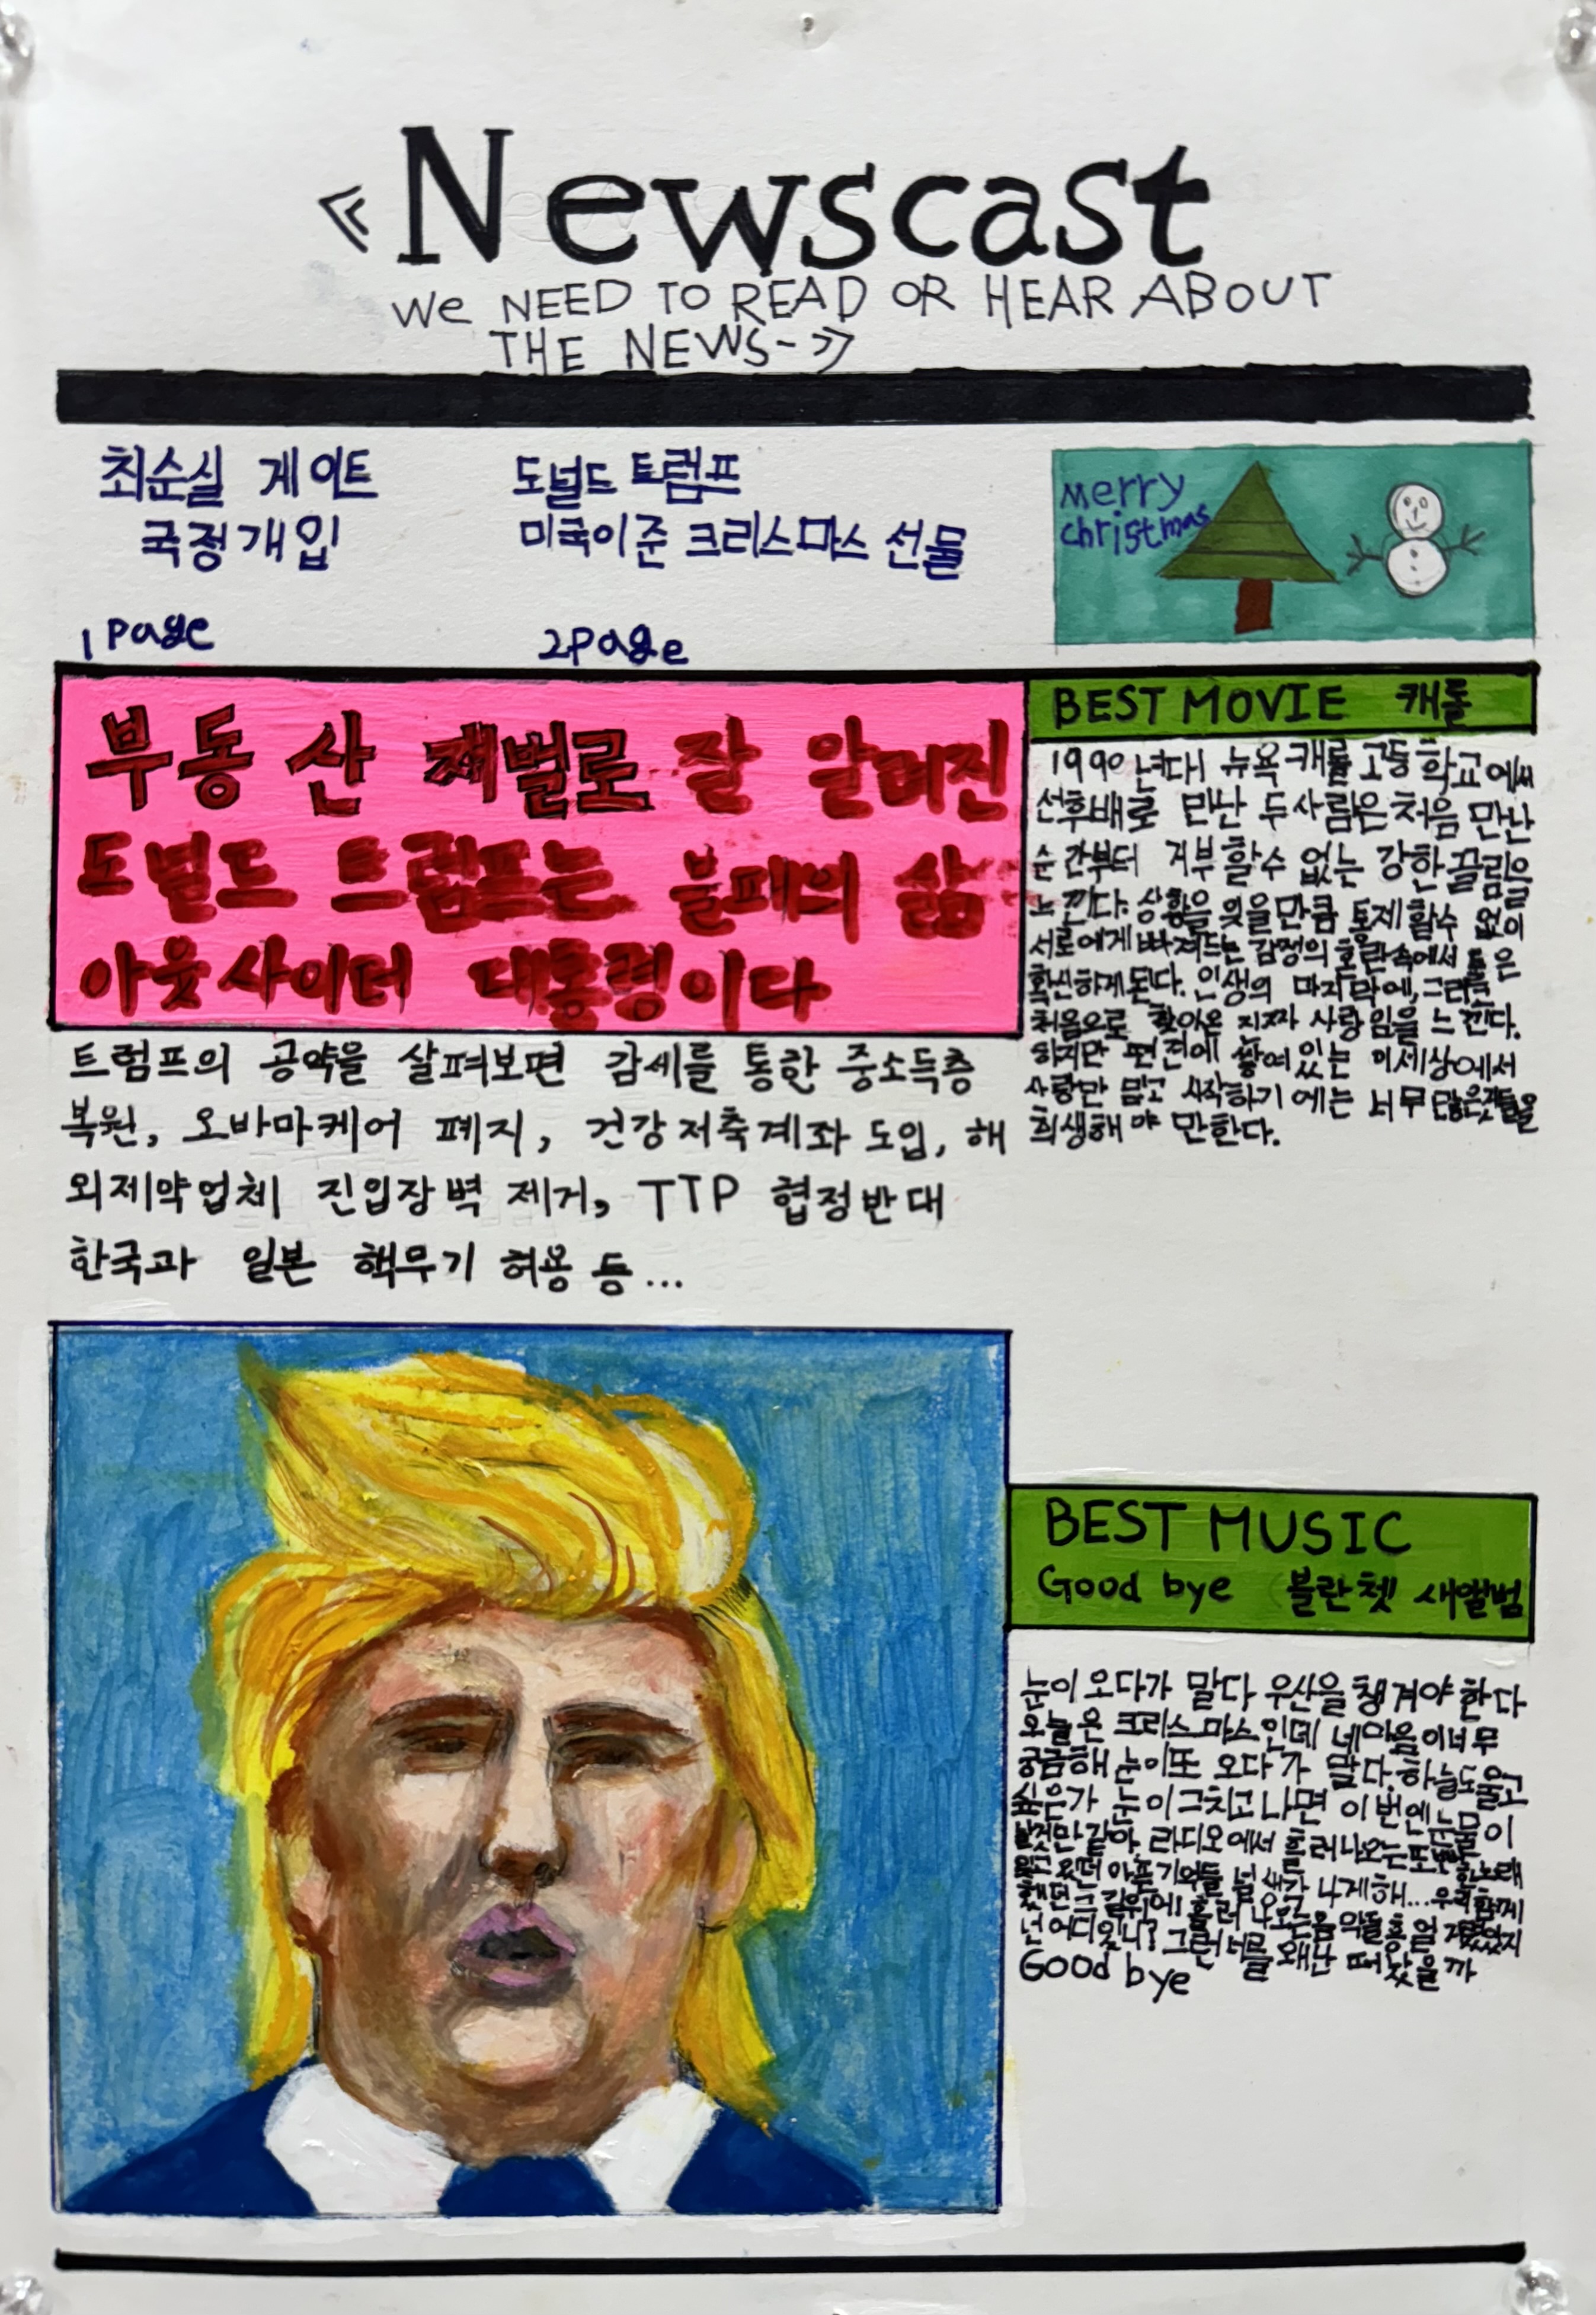 ≪Newscast
We NEED TO READ OR HEAR ABOUT
THE NEWS-≫
최순실 게이트
국정개입
1 Page
도널드 트럼프
미국이 준 크리스마스 선물
2 Page
merry
christmas
부동산 재벌로 잘 알려진
도널드 트럼프는 불패의 삶
아웃사이더 대통령이다
트럼프의 공약을 살펴보면 감세를 통한 중소득층
복원, 오바마케어 폐지, 건강저축계좌 도입, 해
외제약업체 진입장벽 제거, TTP 협정반대
한국과 일본 핵무기 허용 등...
BEST MOVIE 캐롤
1990년대 뉴욕 캐롤 고등학교에서
선후배로 만난 두 사람은 처음 만난
순간부터 거부할수 없는 강한 끌림을
느낀다. 상황을 잊을만큼 통제할수 없이
서로에게 빠져드는 감정의 혼란속에서 둘은
확신하게된다. 인생의 마지막에, 그리고
처음으로 찾아온 진짜 사랑임을 느낀다.
하지만 편견에 쌓여있는 이세상에서
사랑만 믿고 시작하기에는 너무 많은것들을
희생해야 만한다.
BEST MUSIC
Good bye 블란쳇 새앨범
눈이 오다가 말다 우산을 챙겨야 한다
오늘은 크리스마스인데 네마음이너무
궁금해 눈이또 오다가 말다. 하늘도울고
싶은가 눈이그치고나면 이번엔눈물이
날것만같아. 라디오에서 흘러나오는또뻔한노래
아픈기억들 널 생각나게해...우리함께
했던 그 길위에 흘러나오는음악들
넌어디있니? 그런너를 왜난 떠났을까
Good bye